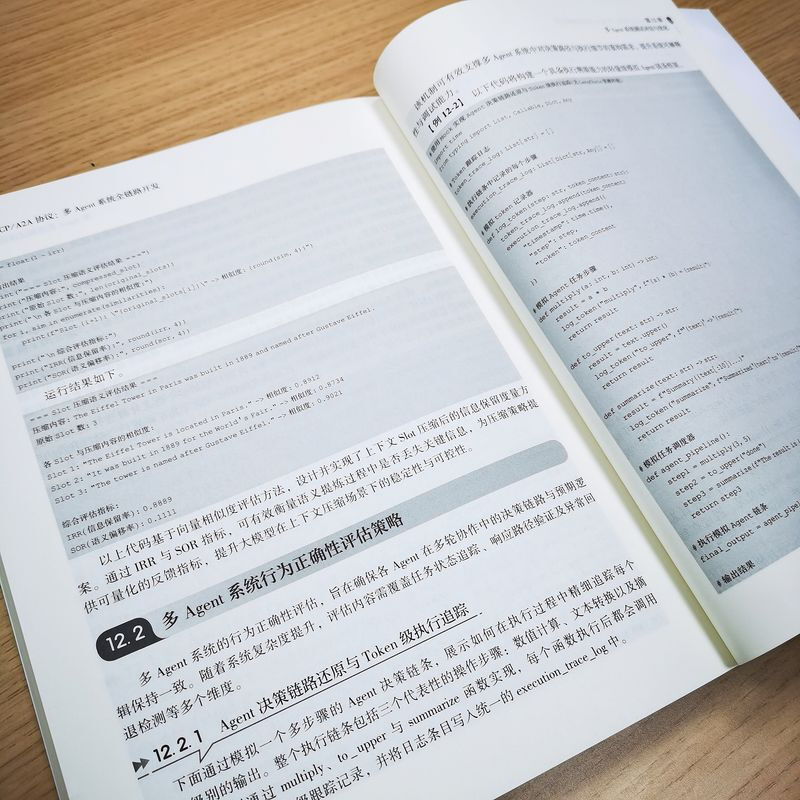 CP/A2A 协议：多 Agent 系统全链路开发
= float(1 - irr)
print("=== Slot 压缩语义评估结果 ===")
print("压缩内容:", compressed_slot)
print("原始 Slot 数:", len(original_slots))
print("\n 各 Slot 与压缩内容的相似度:")
for i, sim in enumerate(similarities):
print(f"Slot {i+1}: \"{original_slots[i]}\" -> 相似度: {round(sim, 4)}")
print("\n 综合评估指标:")
print("IRR(信息保留率):", round(irr, 4))
print("SOR(语义偏移率):", round(sor, 4))
运行结果如下。
=== Slot 压缩语义评估结果 ===
压缩内容: The Eiffel Tower in Paris was built in 1889 and named after Gustave Eiffel.
原始 Slot 数: 3
各 Slot 与压缩内容的相似度:
Slot 1: "The Eiffel Tower is located in Paris." -> 相似度: 0.8912
Slot 2: "It was built in 1889 for the World's Fair." -> 相似度: 0.8734
Slot 3: "The tower is named after Gustave Eiffel." -> 相似度: 0.9021
综合评估指标:
IRR(信息保留率): 0.8889
SOR(语义偏移率): 0.1111
以上代码基于向量相似度评估方法，设计并实现了上下文 Slot 压缩后的信息保留度量方
案。通过 IRR 与 SOR 指标，可有效衡量语义提炼过程中是否丢失关键信息，为压缩策略提
供可量化的反馈指标，提升大模型在上下文压缩场景下的稳定性与可控性。
12.2 多 Agent 系统行为正确性评估策略
多 Agent 系统的行为正确性评估，旨在确保各 Agent 在多轮协作中的决策链路与预期逻
辑保持一致。随着系统复杂度提升，评估内容需覆盖任务状态追踪、响应路径验证及异常回
退检测等多个维度。
12.2.1 Agent 决策链路还原与 Token 级执行追踪
下面通过模拟一个多步骤的 Agent 决策链条，展示如何在执行过程中精细追踪每个
级别的输出。整个执行链条包括三个代表性的操作步骤：数值计算、文本转换以及摘
通过 multiply、to_upper 与 summarize 函数实现，每个函数执行后都会调用
级跟踪记录，并将日志条目写入统一的 execution_trace_log 中。
第12章
多 Agent 系统测试与优化
该机制可有效支撑多 Agent 系统中对决策路径与执行细节的
性与调试能力。
【例 12-2】 以下代码将构建一个具备执行
import time
from typing import List, Callable, Dict, Any
# Token 跟踪日志
token_trace_log: List[str] = []
# 执行链条中记录的每个步骤
execution_trace_log: List[Dict[str, Any]] = []
# 模拟 token 记录器
def log_token(step: str, token_content: str):
token_trace_log.append(token_content)
execution_trace_log.append({
"timestamp": time.time(),
"step": step,
"token": token_content
# 模拟 Agent 任务步骤
def multiply(a: int, b: int) -> int:
result = a * b
log_token("multiply", f"{a} * {b} = {result}")
return result
def to_upper(text: str) -> str:
result = text.upper()
log_token("to_upper", f"'{text}'
return result
def summarize(text: str) -> str:
result = f"Summary({text[:10]}...)"
log_token("summarize", f"Summarized
return result
# 模拟任务调度器
def agent_pipeline():
step1 = multiply(3, 5)
step2 = to_upper("done")
step3 = summarize(f"The result is
return step3
# 执行模拟 Agent 链条
final_output = agent_pipe
# 输出结果